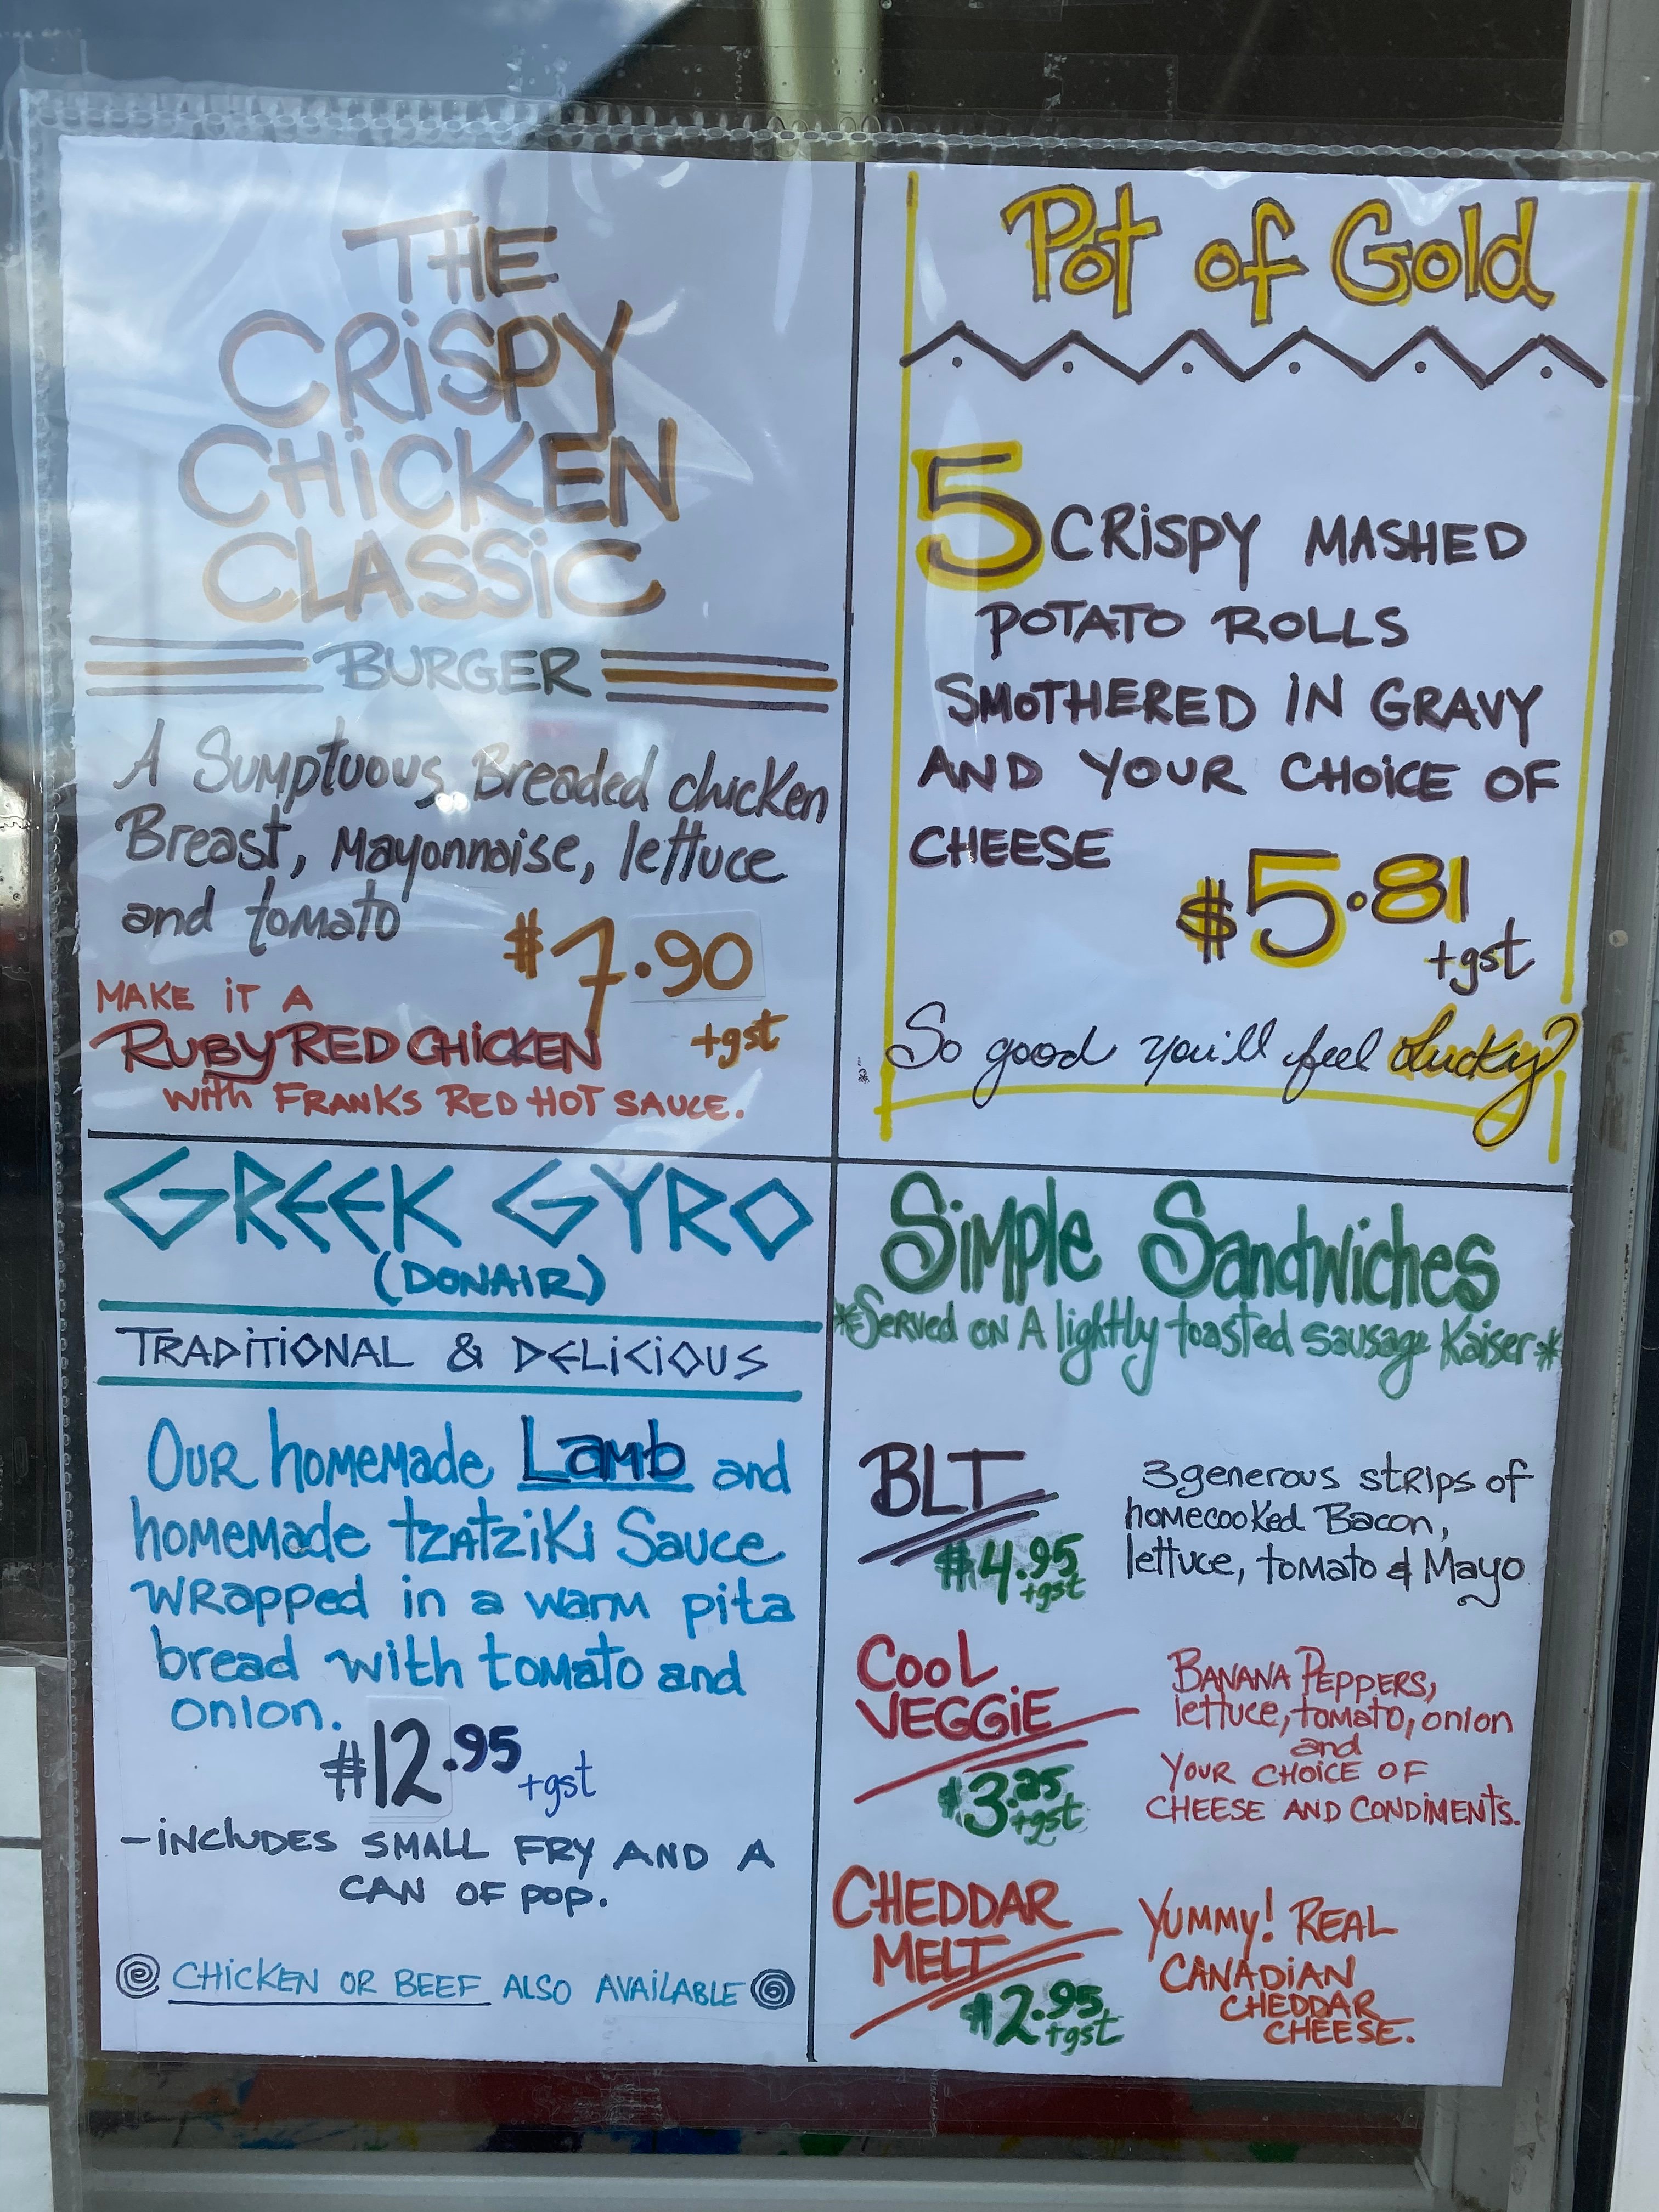 THE
CRiSPY
CHiCKEN
CLASSiC
BURGER
A Sumptuous, Breaded chicken
Breast, Mayonnaise, lettuce
and tomato
$7.90
+gst
MAKE iT A
RUBY RED CHiCKEN
with FRANKS RED HOT SAUCE.
Pot of Gold
5 CRiSPY MASHED
POTATO ROLLS
SMOTHERED IN GRAVY
AND YOUR CHOiCE OF
CHEESE
$5.81
+gst
So good you'll feel Lucky?
GREEK GYRO
(DONAiR)
TRADiTiONAL & DELiCiOUS
OUR homemade Lamb and
homemade tzatziki Sauce
wrapped in a warm pita
bread with tomato and
onion.
$12.95 +gst
-iNCLUDES SMALL FRY AND A
CAN OF POP.
CHiCKEN OR BEEF ALSO AVAiLABLE
Simple Sandwiches
*Served on A lightly toasted sausage Kaiser*
BLT
$4.95
+gst
3 generous strips of
homecooked Bacon,
lettuce, tomato & Mayo
COOL
VEGGiE
$3.25
+gst
BANANA PEPPERS,
lettuce, tomato, onion
and
YOUR CHOiCE OF
CHEESE AND CONDiMENTS.
CHEDDAR
MELT
$2.95
+gst
YUMMY! REAL
CANADiAN
CHEDDAR
CHEESE.